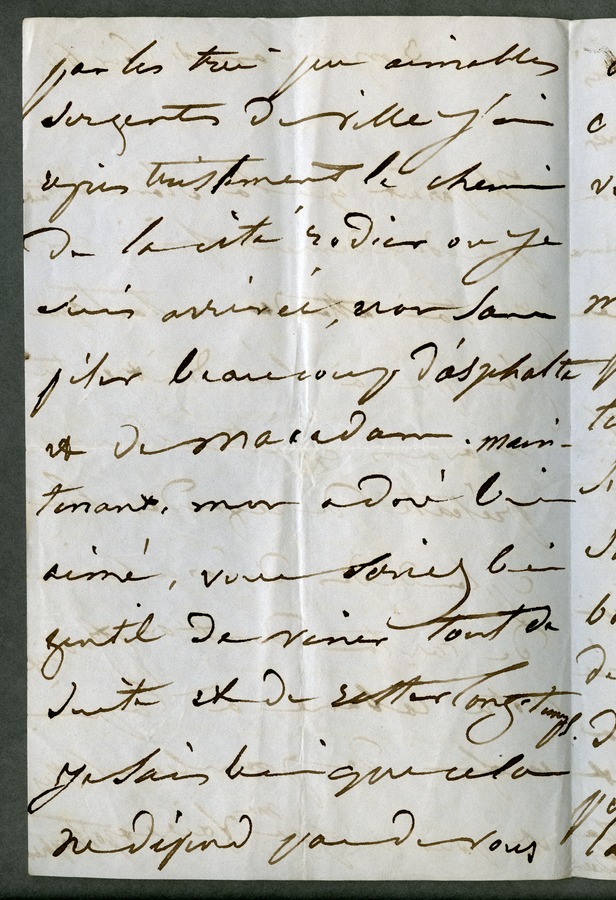 par les très peu aimables
sergents de ville j'ai
repris tristement le chemin
de la cité rodier ou je
suis arrivée, non sans
piler beaucoup d'asphalte
et de macadam. main-
tenant, mon adoré bien
aimé, vous seriez bien
gentil de venir tout de
suite et de rester longtemps.
je sais bien que cela
ne dépend pas de vous